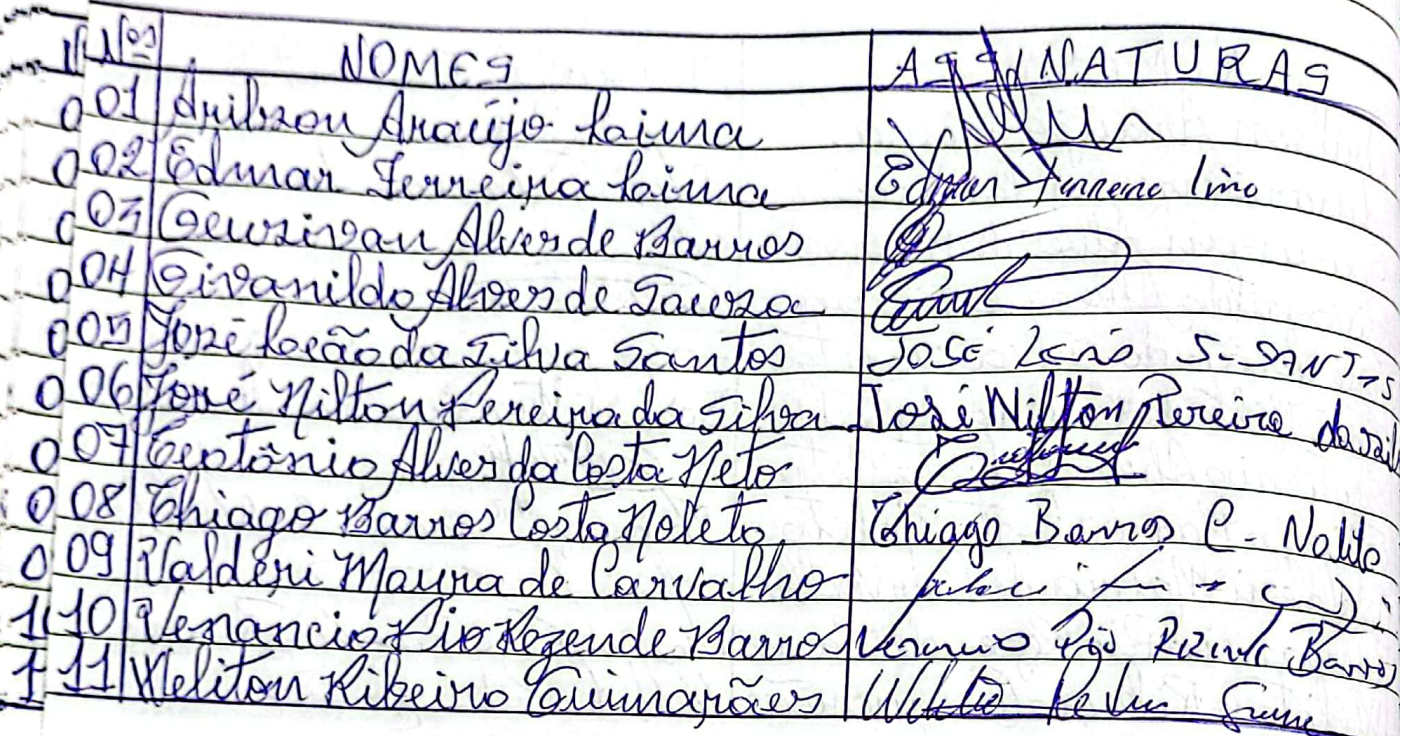 Nos NOMES ASSINATURAS
001 Arilson Araújo Laima
002 Edmar Ferreira Laima Edmar Ferreira Lima
003 Geurzivan Alves de Barros
004 Givanildo Alves de Souza
005 José Leão da Silva Santos JOSÉ Leão S. SANTOS
006 José Nilton Pereira da Silva José Nilton Pereira da Sil
007 Teotônio Alves da Costa Neto
008 Thiago Barros Costa Noleto Thiago Barros C. Noleto
009 Valderi Moura de Carvalho
10 Venancio Pio Rezende Barros Pio Rezende Barros
11 Weliton Ribeiro Guimarães